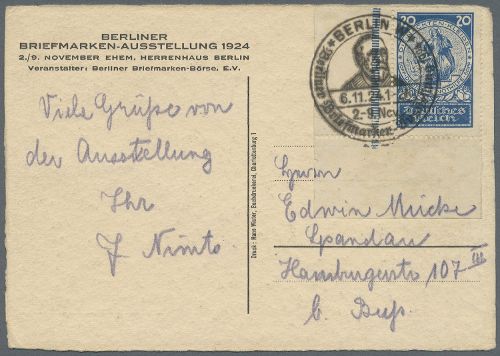 BERLINER
BRIEFMARKEN-AUSSTELLUNG 1924
2./9. NOVEMBER EHEM. HERRENHAUS BERLIN
Veranstalter: Berliner Briefmarken-Börse. E.V.
Viele Grüße von
der Ausstellung
Ihr
Druck: Hans Winter, Buchdruckerei, Charlottenburg 1
BERLIN
6.11.24.1-
2-9.Nov
Berliner Briefmarken-
20 20
Deutsches
Reich
Herrn
Edwin Mücke
Spandau
Hamburgerstr 107 III
b. Buß.